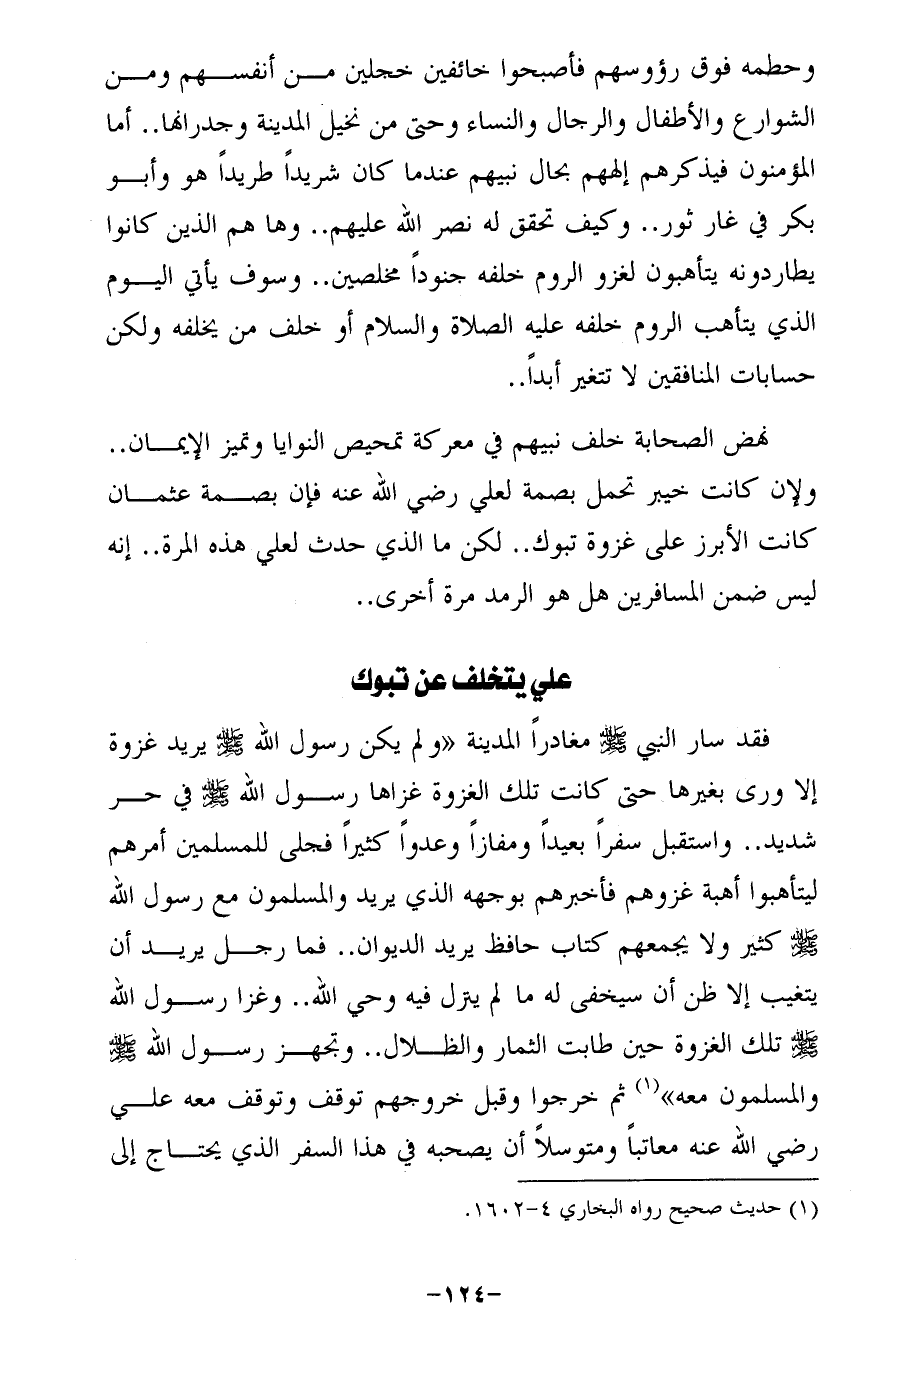 وحطمه فوق رؤوسهم فأصبحوا خائفين خجلين مـن أنفسـهم ومـن
الشوارع والأطفال والرجال والنساء وحتى من نخيل المدينة وجدرانها.. أما
المؤمنون فيذكرهم إلههم بحال نبيهم عندما كان شريداً طريداً هو وأبـو
بكر في غار ثور.. وكيف تحقق له نصر الله عليهم.. وها هم الذين كانوا
يطاردونه يتأهبون لغزو الروم خلفه جنوداً مخلصين.. وسوف يأتي اليـوم
الذي يتأهب الروم خلفه عليه الصلاة والسلام أو خلف من يخلفه ولكن
حسابات المنافقين لا تتغير أبداً..
نهض الصحابة خلف نبيهم في معركة تمحيص النوايا وتميز الإيمـان..
ولإن كانت خيبر تحمل بصمة لعلي رضي الله عنه فإن بصـمة عثمـان
كانت الأبرز على غزوة تبوك.. لكن ما الذي حدث لعلي هذه المرة.. إنه
ليس ضمن المسافرين هل هو الرمد مرة أخرى..
علي يتخلف عن تبوك
فقد سار النبي ﷺ مغادراً المدينة «ولم يكن رسول الله ﷺ يريد غزوة
إلا ورى بغيرها حتى كانت تلك الغزوة غزاها رسـول الله ﷺ في حـر
شديد.. واستقبل سفراً بعيداً ومفازاً وعدواً كثيراً فجلى للمسلمين أمرهم
ليتأهبوا أهبة غزوهم فأخبرهم بوجهه الذي يريد والمسلمون مع رسول الله
ﷺ كثير ولا يجمعهم كتاب حافظ يريد الديوان.. فما رجـل يريـد أن
يتغيب إلا ظن أن سيخفى له ما لم ينزل فيه وحي الله.. وغزا رسـول الله
ﷺ تلك الغزوة حين طابت الثمار والظـلال.. وتجهـز رسـول الله ﷺ
والمسلمون معه»(١) ثم خرجوا وقبل خروجهم توقف وتوقف معه علـي
رضي الله عنه معاتباً ومتوسلاً أن يصحبه في هذا السفر الذي يحتـاج إلى
(١) حديث صحيح رواه البخاري ٤-١٦٠٢.
-١٢٤-